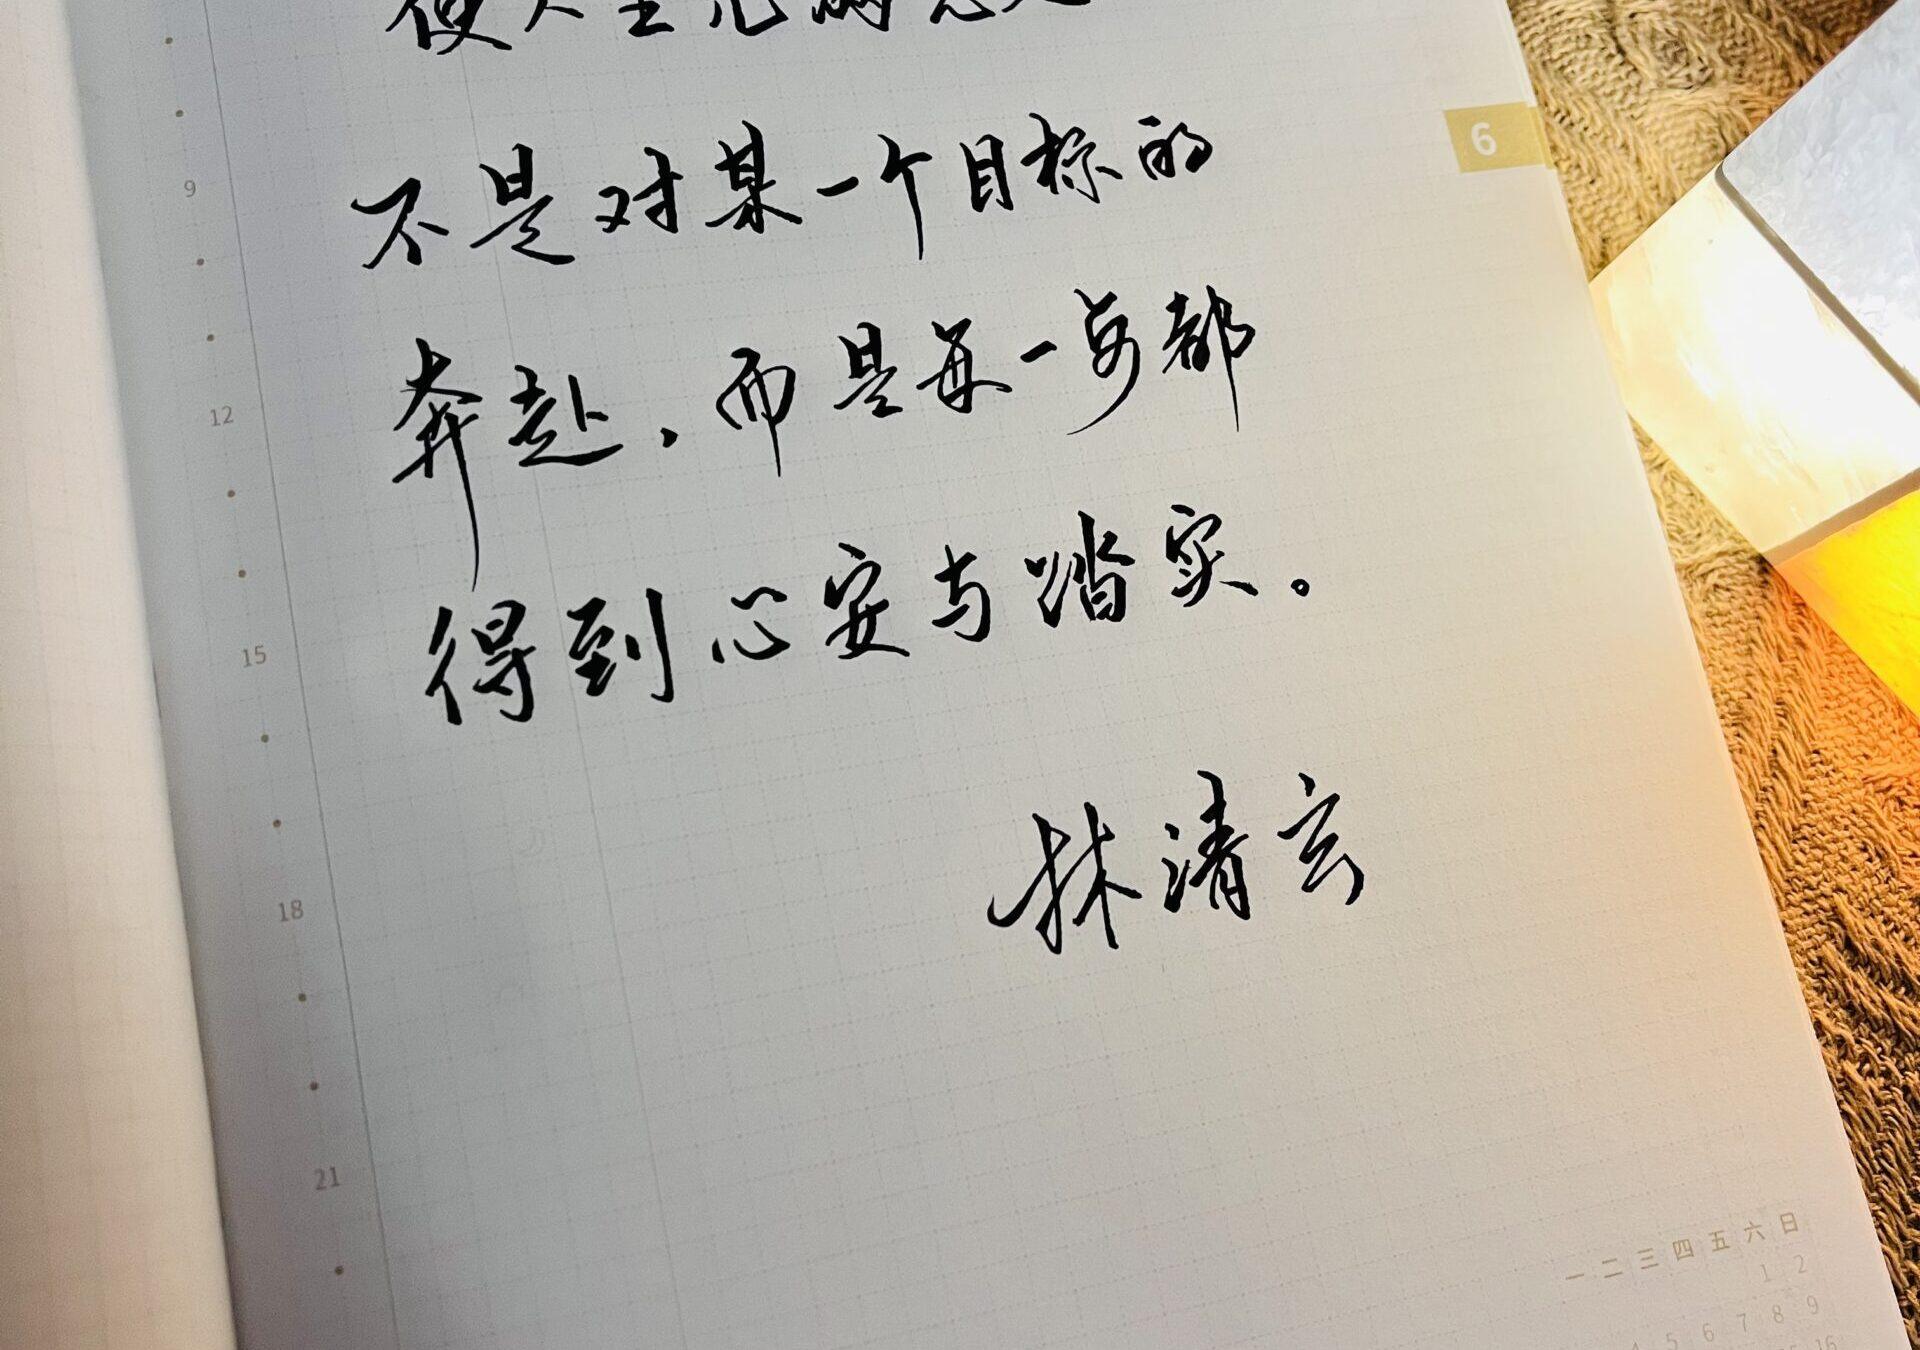 使人生完满的总是
不是对某一个目标的
6
9
奔赴，而是每一步都
12
得到心安与踏实。
15
林清玄
18
21
一 二 三 四 五 六 日
1 2
4 5 6 7 8 9
16